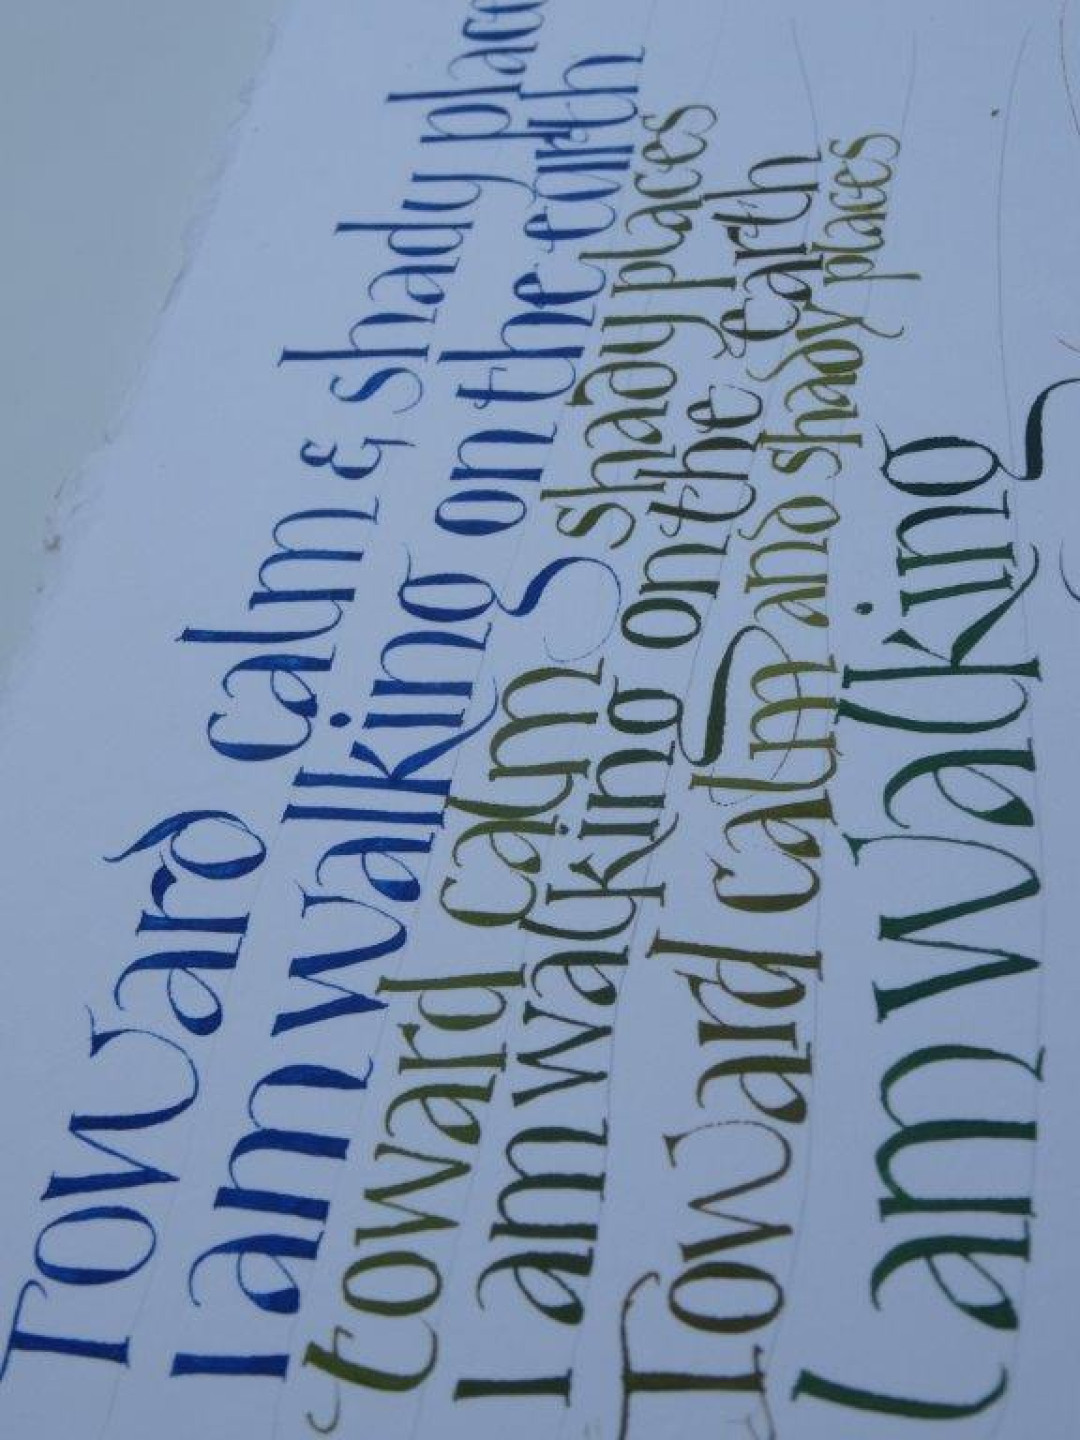 Toward calm & shady place
I am walking on the earth
toward calm shady places
I am walking on the earth
Toward calm and shady places
I am walking